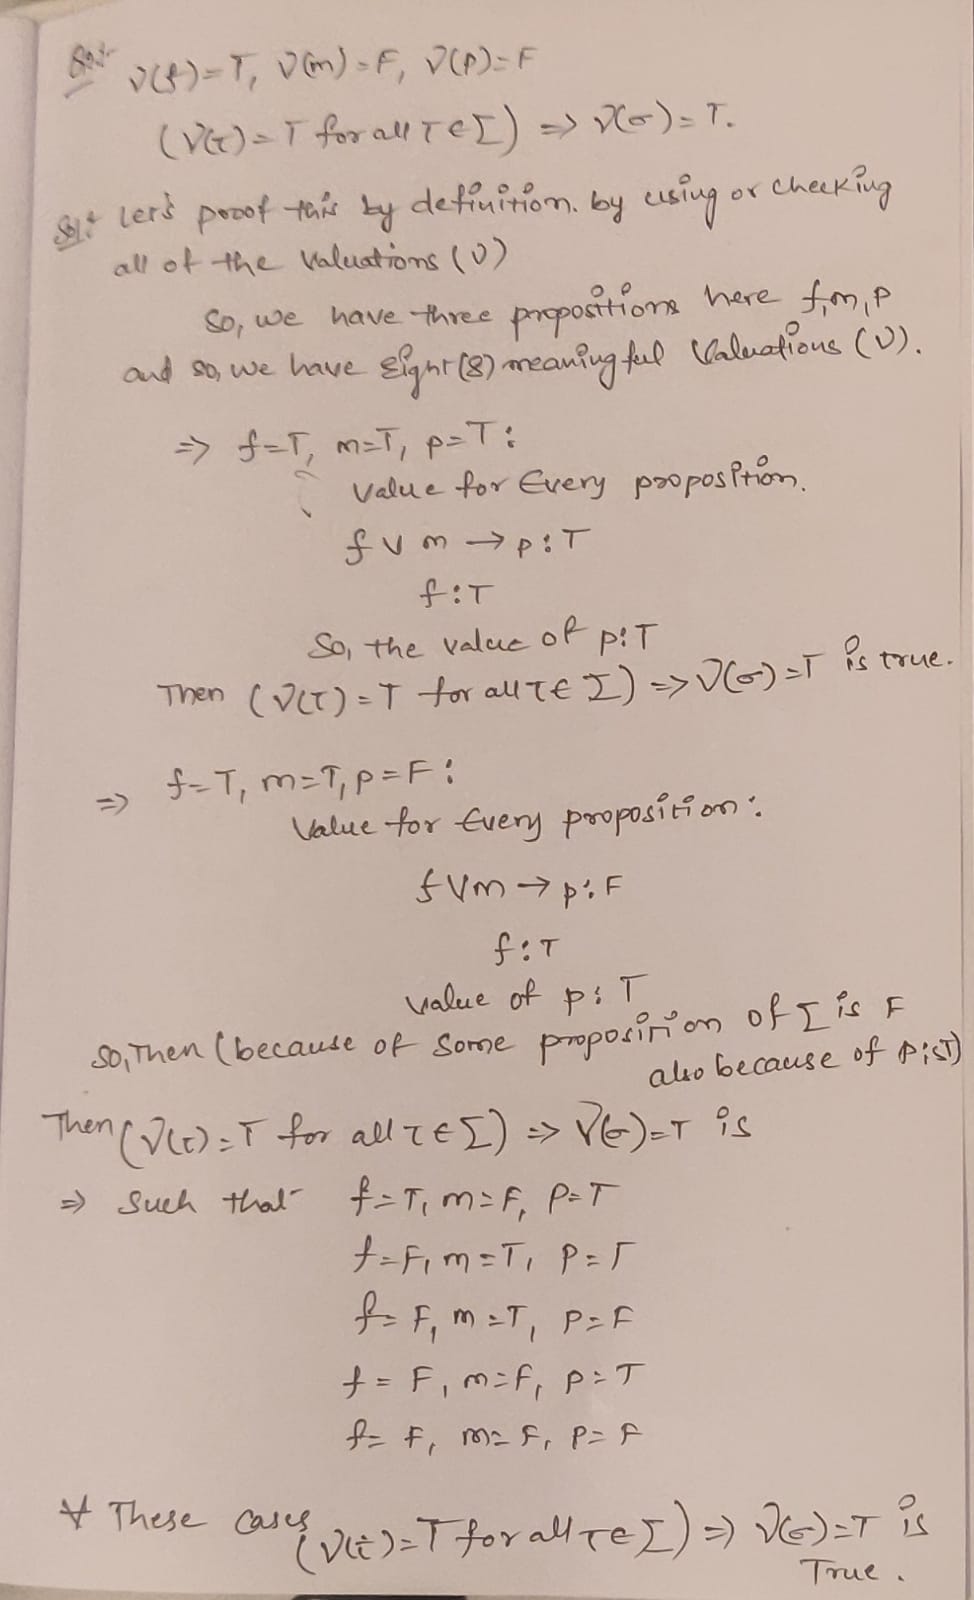 Qn:-
V(f)=T, V(m)=F, V(p)=F
(V(τ)=T for all τ∈Σ) ⇒ V(σ)=T.
Sol: Let's proof this by definition. by using or checking
all of the valuations (V)
So, we have three propositions here f,m,p
and so, we have Eight (8) meaningful Valuations (V).
⇒ f=T, m=T, p=T:
value for Every proposition.
f∨m→p:T
f:T
So, the value of p:T
Then (V(τ)=T for all τ∈Σ) ⇒ V(σ)=T is true.
⇒ f=T, m=T, p=F:
Value for Every proposition:
f∨m→p:F
f:T
value of p:T
So, Then (because of some proposition of Σ is F
also because of p is T)
Then (V(τ)=T for all τ∈Σ) ⇒ V(σ)=T is
⇒ such that f=T, m=F, P=T
f=F, m=T, P=T
f=F, m=T, P=F
f=F, m=F, p=T
f=F, m=F, p=F
∀ These cases (V(τ)=T for all τ∈Σ) ⇒ V(σ)=T is
True.